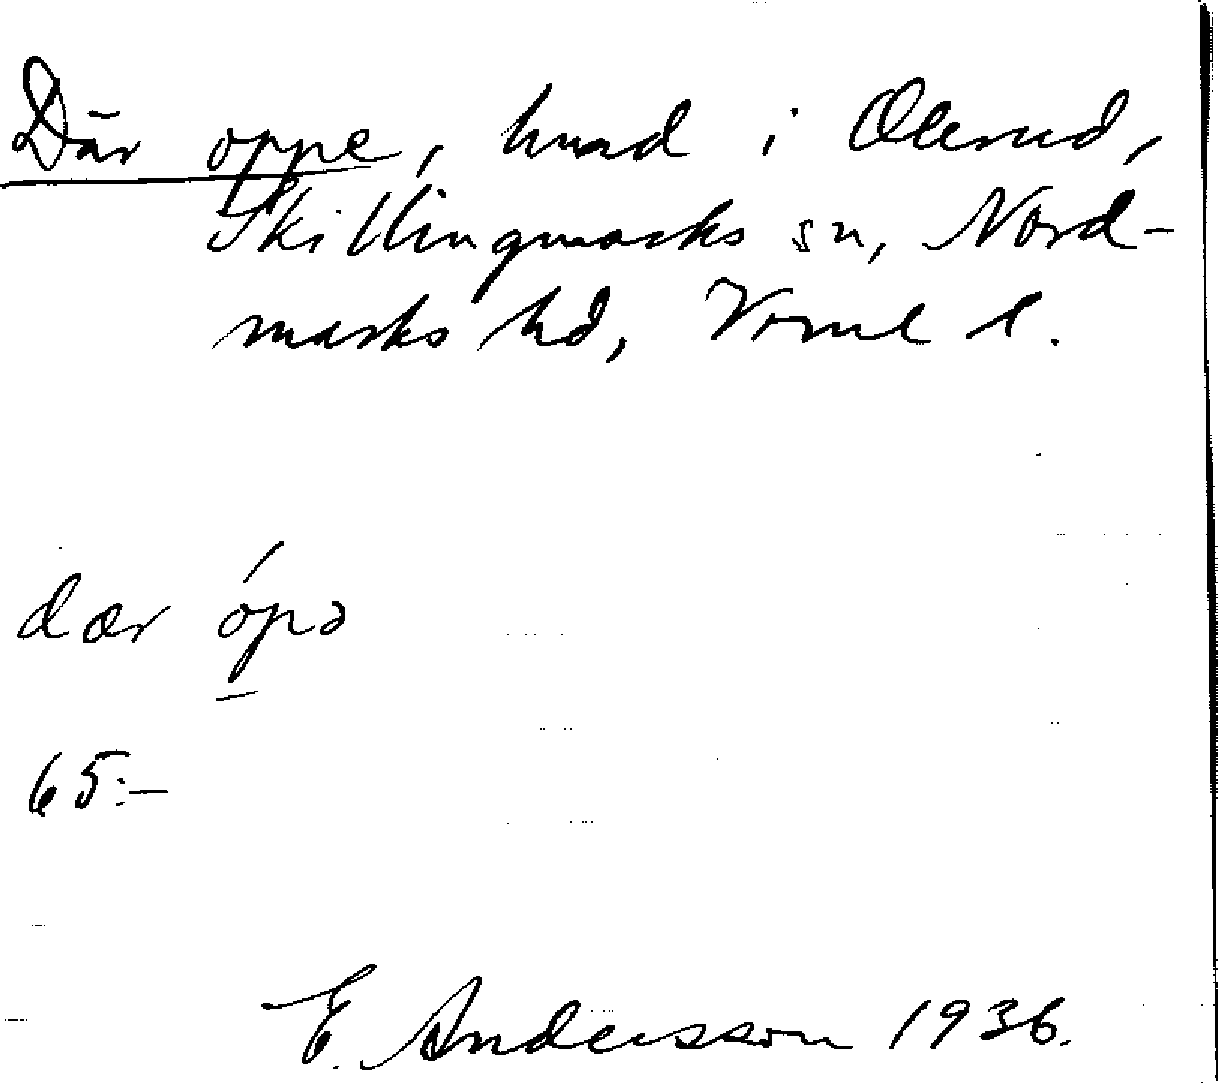 Där oppe, hmd i Olerud,
Skillingmarks sn, Nord-
marks hd, Värml l.
dær ópə
65:-
E. Andersson 1936.